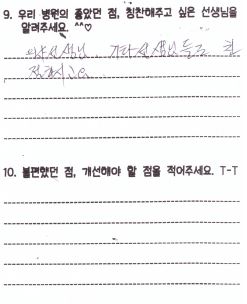 9. 우리 병원의 좋았던 점, 칭찬해주고 싶은 선생님을
알려주세요. ^^♡
선생님 기타 선생님들도 친
절하시고요
10. 불편했던 점, 개선해야 할 점을 적어주세요. T-T